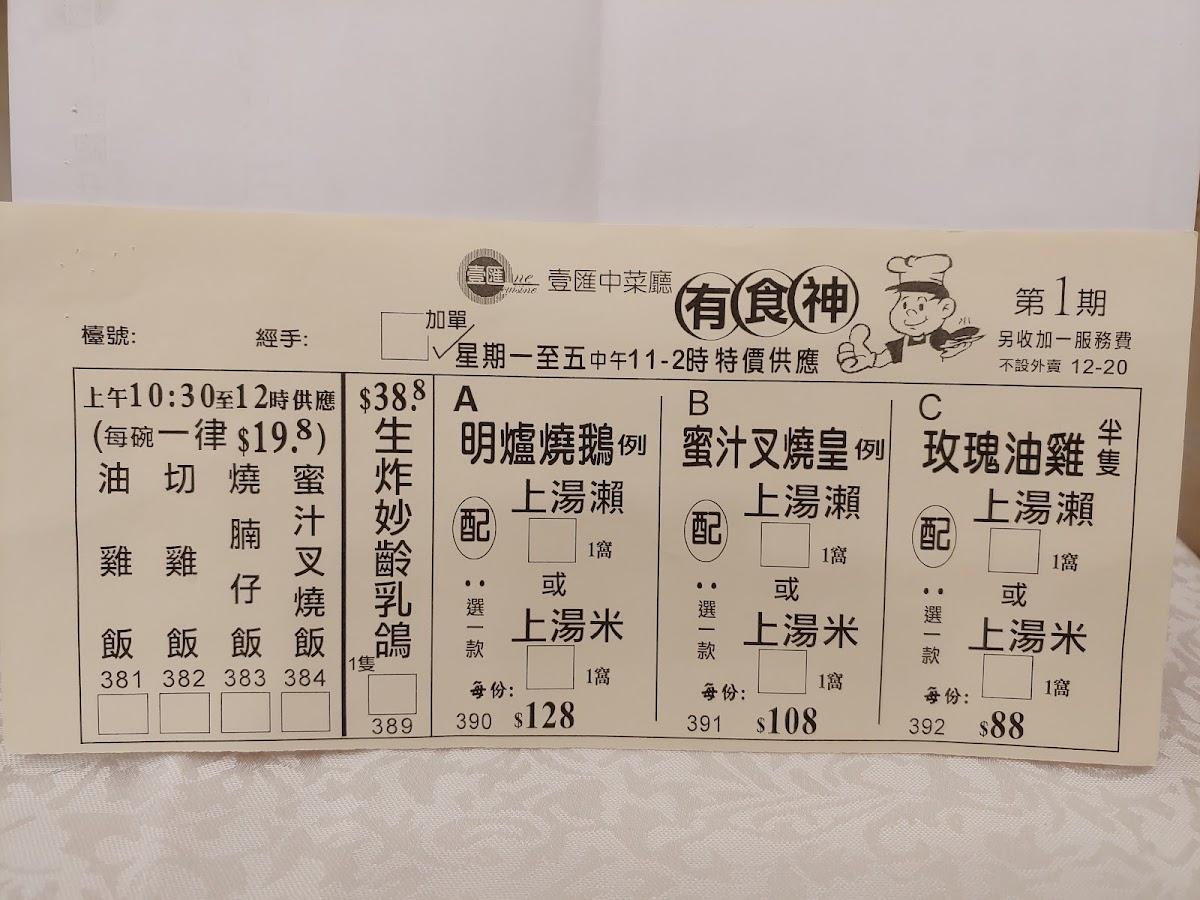 壹匯 One Cuisine 壹匯中菜廳 有食神
第1期
另收加一服務費
不設外賣 12-20
檯號: 經手: 加單
星期一至五中午11-2時特價供應
上午10:30至12時供應
(每碗一律$19.8)
油雞飯
381
切雞飯
382
燒腩仔飯
383
蜜汁叉燒飯
384
$38.8
生炸妙齡乳鴿
1隻
389
A
明爐燒鵝例
配:選一款
上湯瀨
1窩
或
上湯米
1窩
每份:
390 $128
B
蜜汁叉燒皇例
配:選一款
上湯瀨
1窩
或
上湯米
1窩
每份:
391 $108
C
玫瑰油雞半隻
配:選一款
上湯瀨
1窩
或
上湯米
1窩
每份:
392 $88